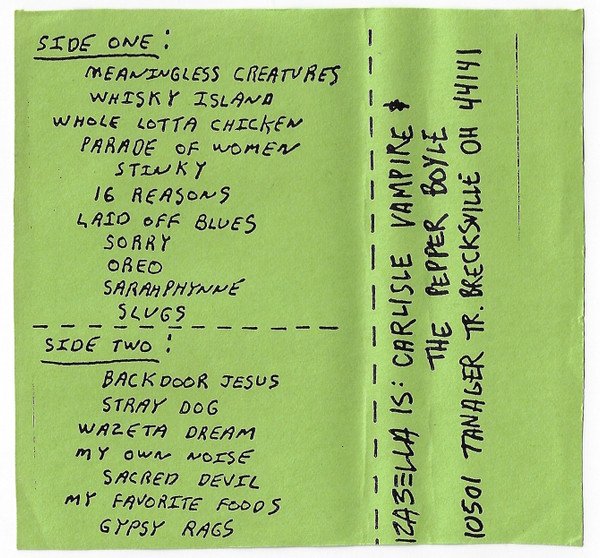 SIDE ONE:
MEANINGLESS CREATURES
WHISKY ISLAND
WHOLE LOTTA CHICKEN
PARADE OF WOMEN
STINKY
16 REASONS
LAID OFF BLUES
SORRY
OREO
SARAHPHYNNE
SLUGS
SIDE TWO:
BACKDOOR JESUS
STRAY DOG
WAZETA DREAM
MY OWN NOISE
SACRED DEVIL
MY FAVORITE FOODS
GYPSY RAGS
IZABELLA IS: CARLISLE VAMPIRE &
THE PEPPER BOYLE
10501 TANAGER TR. BRECKSVILLE OH 44141